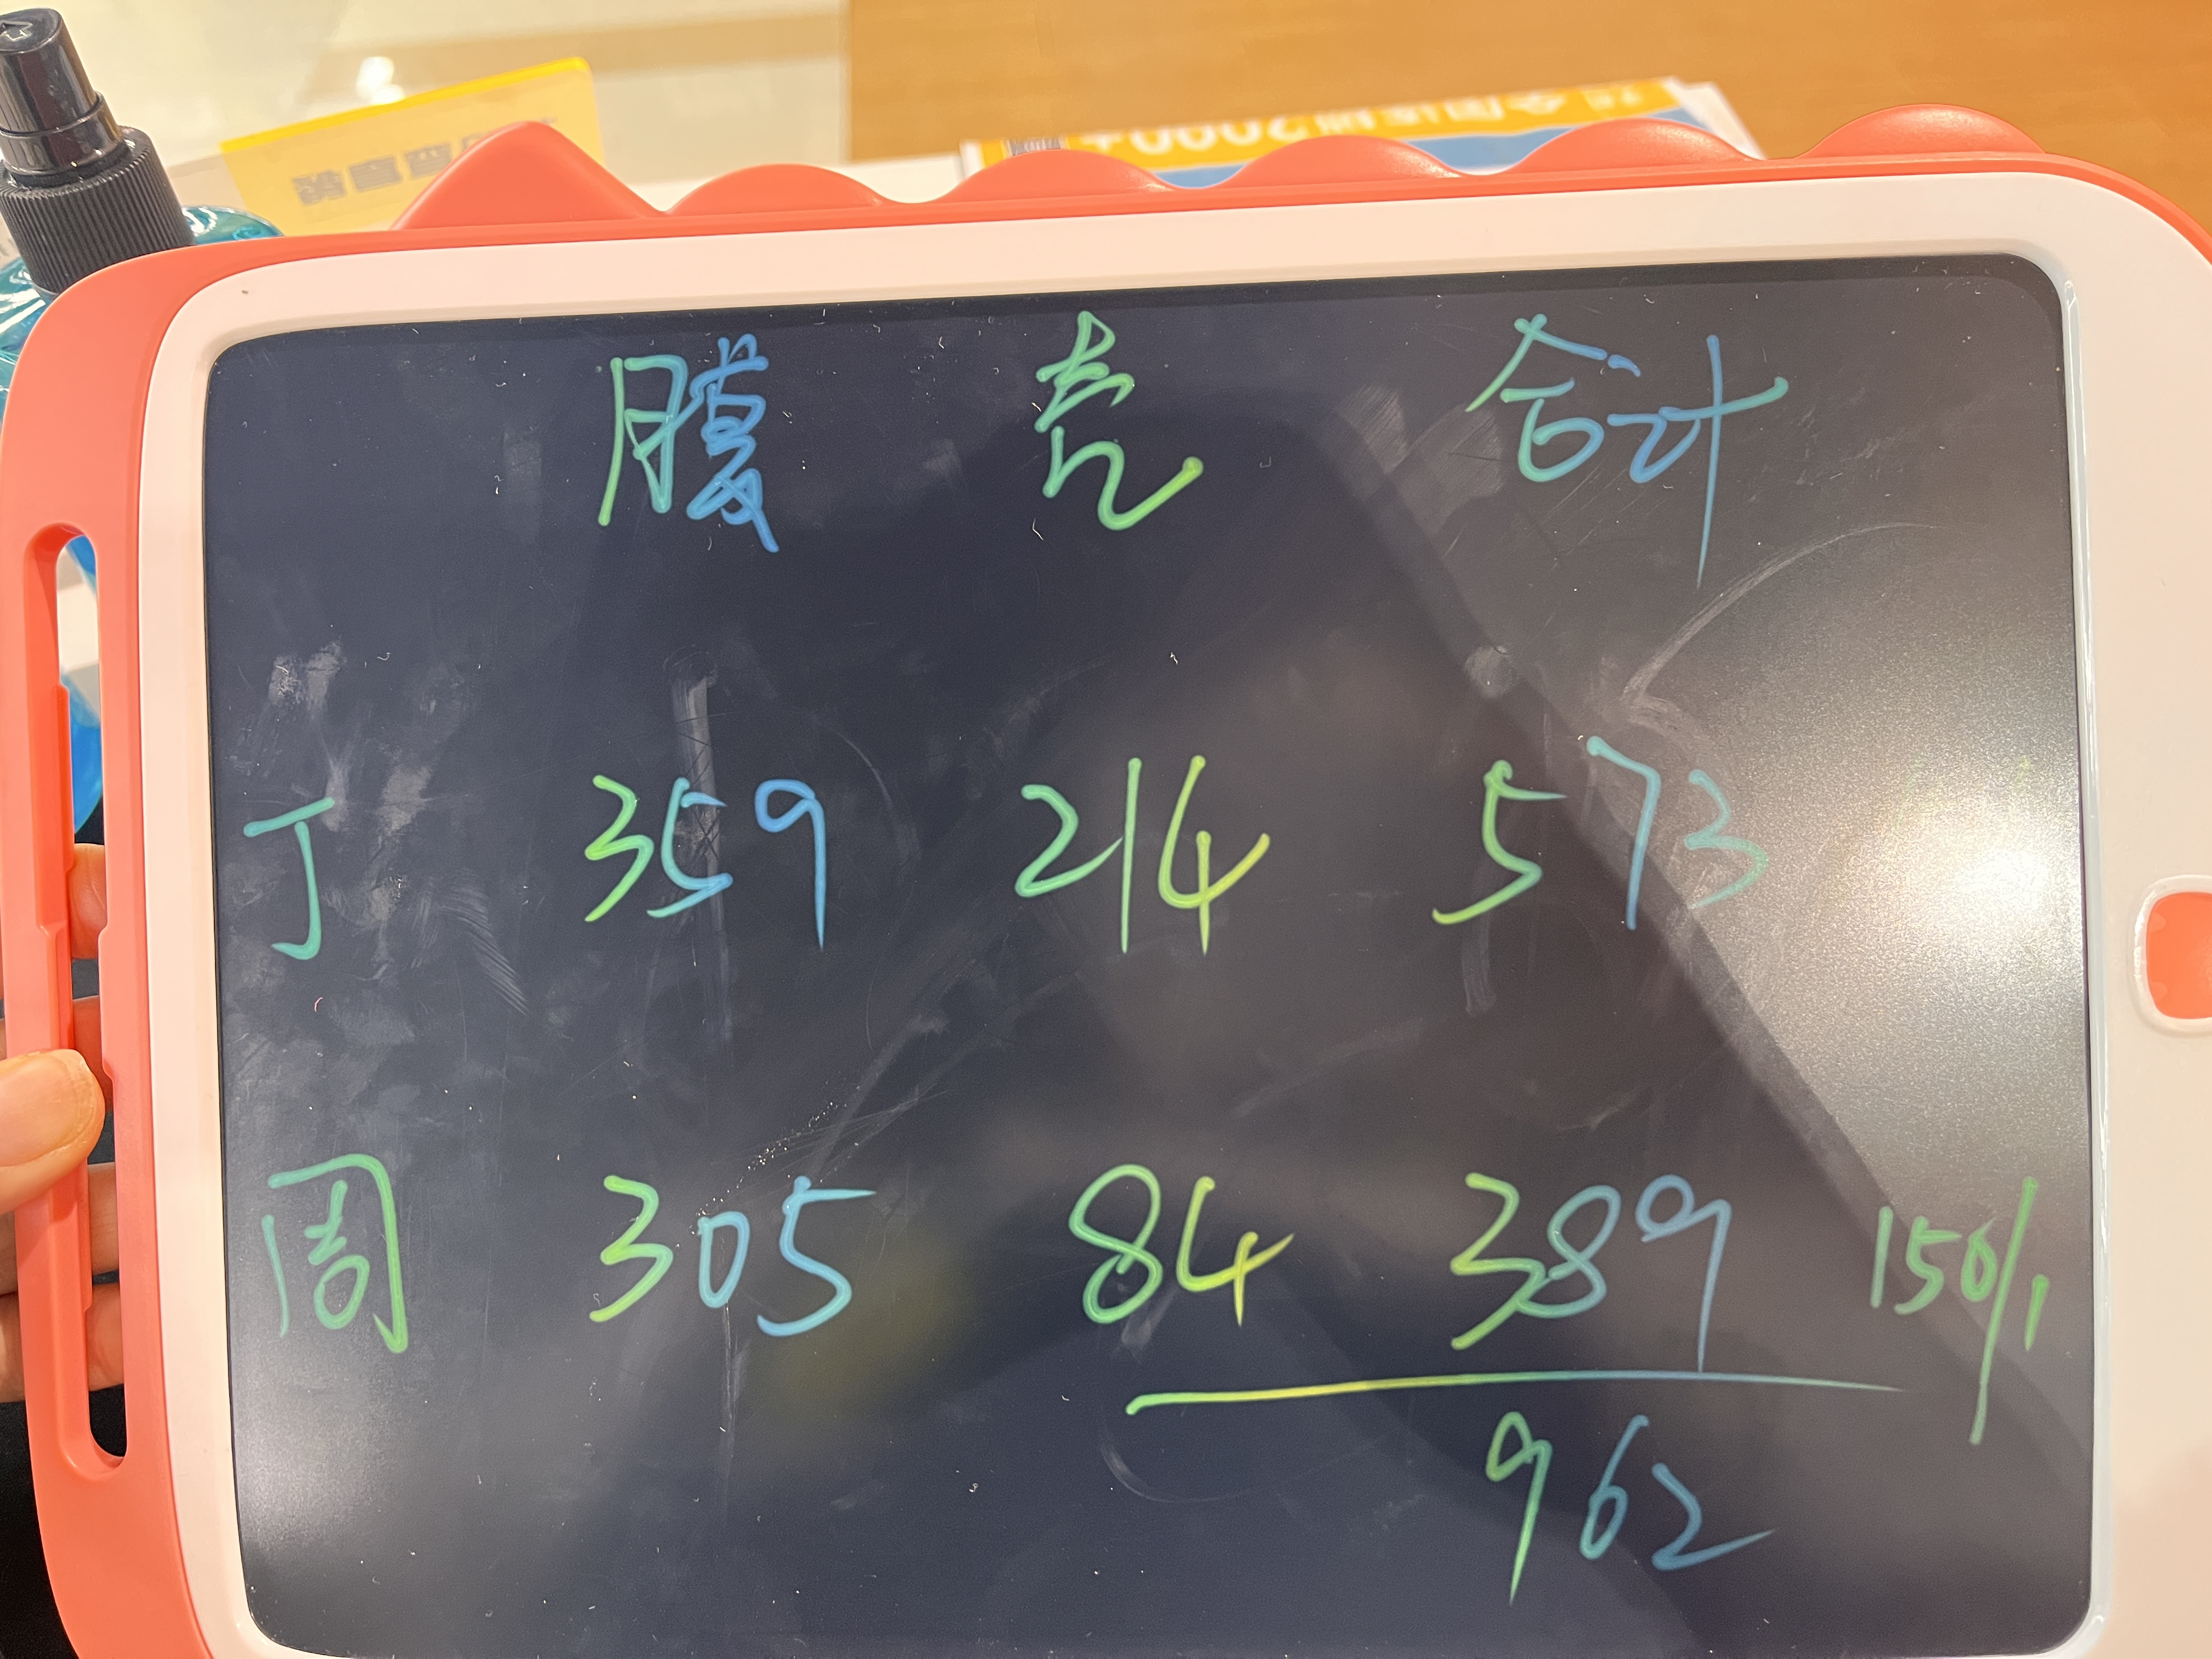 膜 壳 合计
丁 359 214 573
周 305 84 389 150/1
962